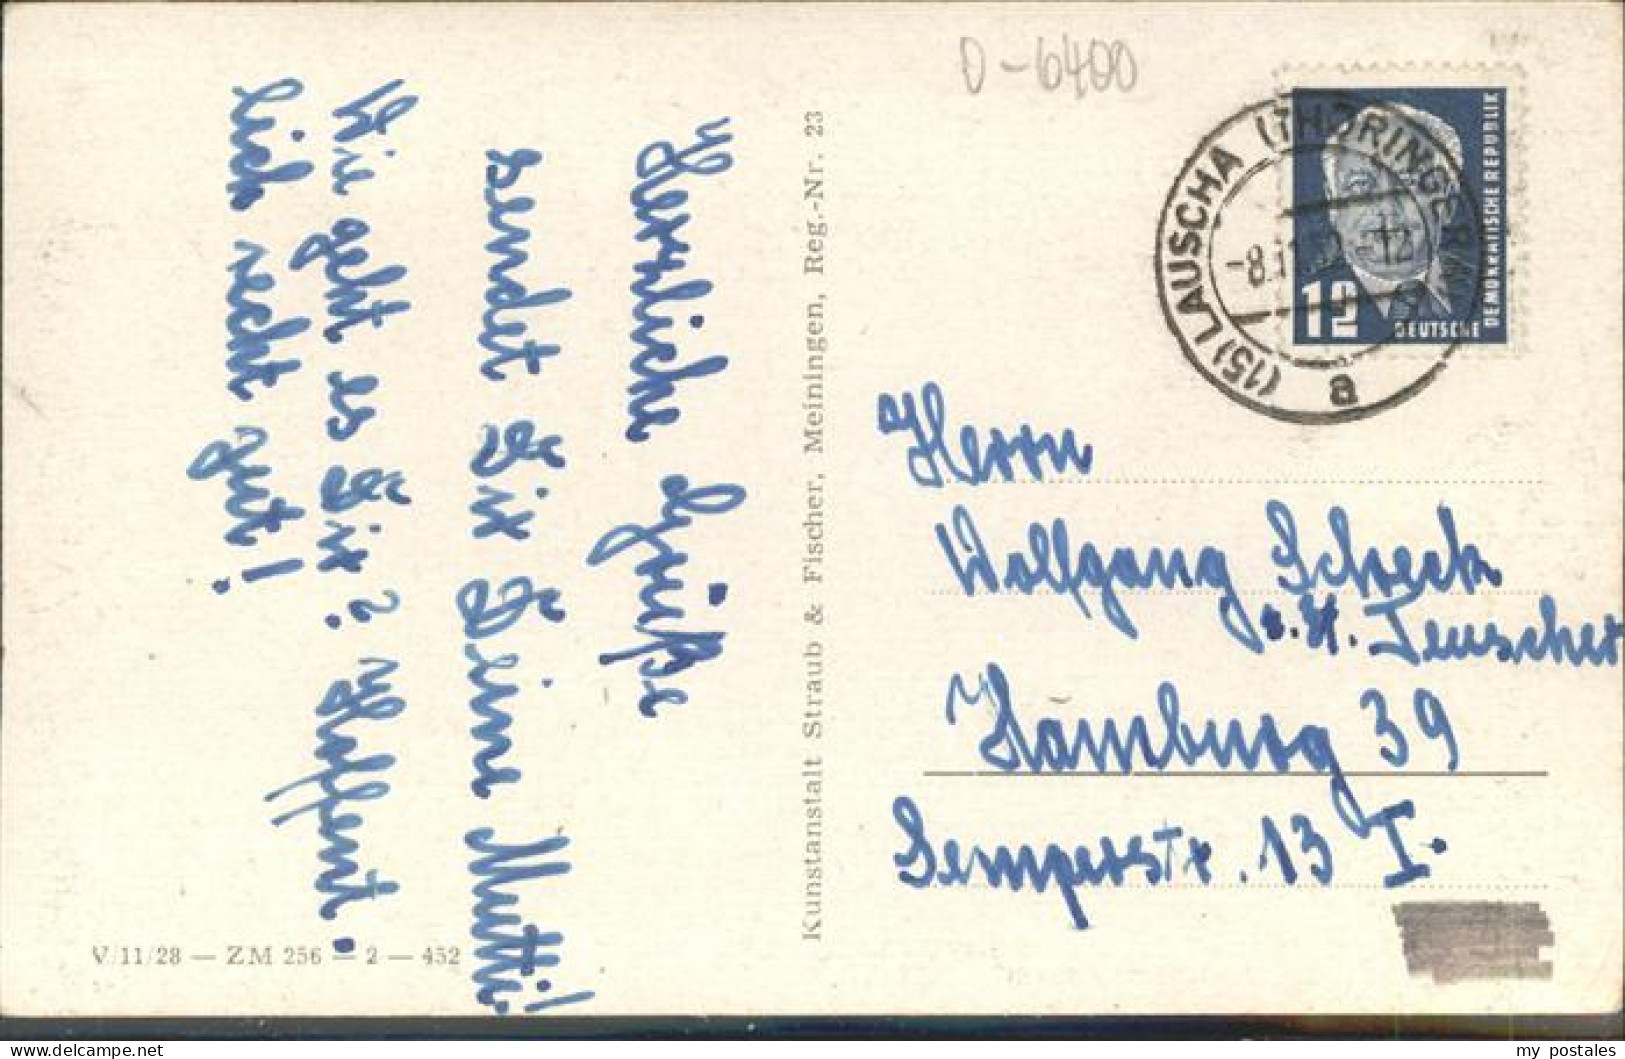 Herzliche Grüße
sendet Dir Deine Mutti!
Wie geht es Dir? Hoffent.
lich recht gut!
V/11/28 — ZM 256 — 2 — 452
Kunstanstalt Straub & Fischer, Meiningen, Reg.-Nr. 23
D-6400
(15) LAUSCHA (THÜRINGER W
a
12
DEUTSCHE
DEMOKRATISCHE REPUBLIK
Herrn
Wolfgang Scheck
b. H. Teuscher
Hamburg 39
Semperstr. 13 I.
my postales